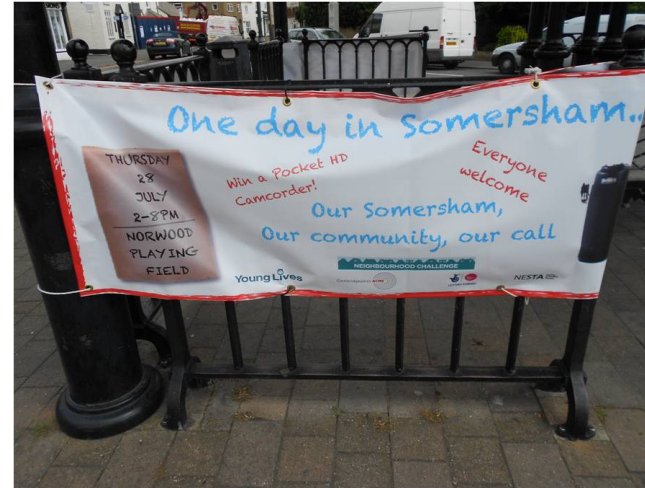 One day in Somersham..
THURSDAY
28
JULY
2-8PM
NORWOOD
PLAYING
FIELD
Win a Pocket HD
Camcorder!
Everyone
welcome
Our Somersham,
Our community, our call
NEIGHBOURHOOD CHALLENGE
YoungLives
NESTA